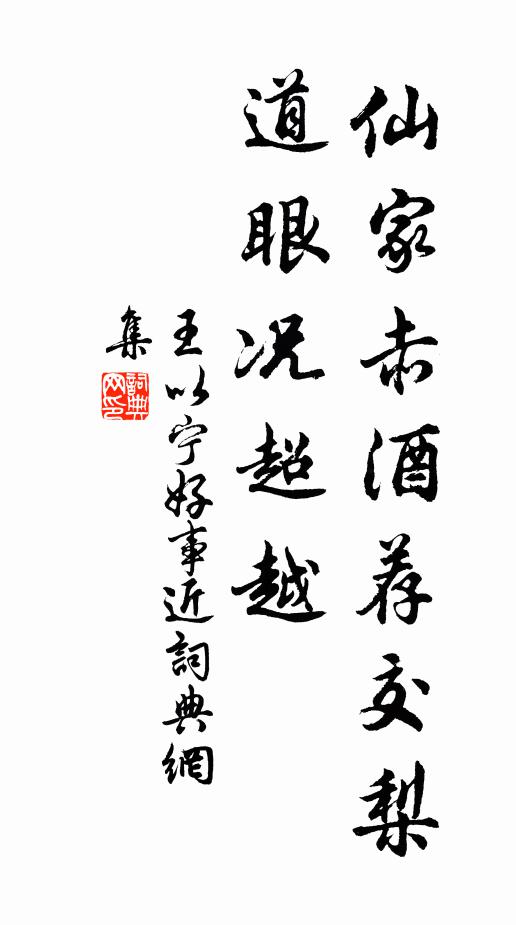 仙家赤酒荐交梨
道眼况超越
王以宁好事近詞典網
集
詞典
网印